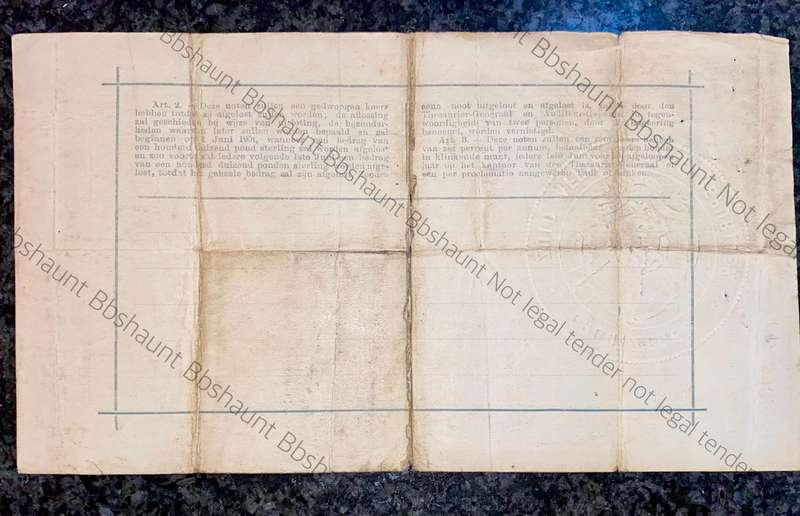 Art. 2. — Deze noten zullen een gedwongen koers
hebben totdat ze afgelost zullen worden; de aflossing
zal geschieden bij wijze van uitloting, de bijzonder-
heden waarvan later zullen worden bepaald en zal
beginnen op 1 Juni 1901, wanneer een bedrag van
een honderd duizend pond sterling zal worden afgelost
en zoo voorts zal iedere volgende 1ste Juni een bedrag
van een honderd duizend ponden sterling worden afge-
lost, totdat het geheele bedrag zal zijn afgelost.
eene noot uitgeloot en afgelost is, zal door den
Thesaurier-Generaal en Auditeur-Generaal in tegen-
woordigheid van twee personen, door de Regeering
benoemd, worden vernietigd.
Art. 3. — Deze noten zullen een rente dragen
van zes percent per annum, betaalbaar
in klinkende munt, iedere 1ste Juni voor het afgeloopen
jaar op het kantoor van den Thesaurier-Generaal of
een per proclamatie aangewezen Bank of Banken.
Bbshaunt Bbshaunt Bbshaunt Not legal tender not legal tender
Bbshaunt Bbshaunt Bbshaunt Not legal tender not legal tender
Bbshaunt Bbshaunt Bbshaunt Not legal